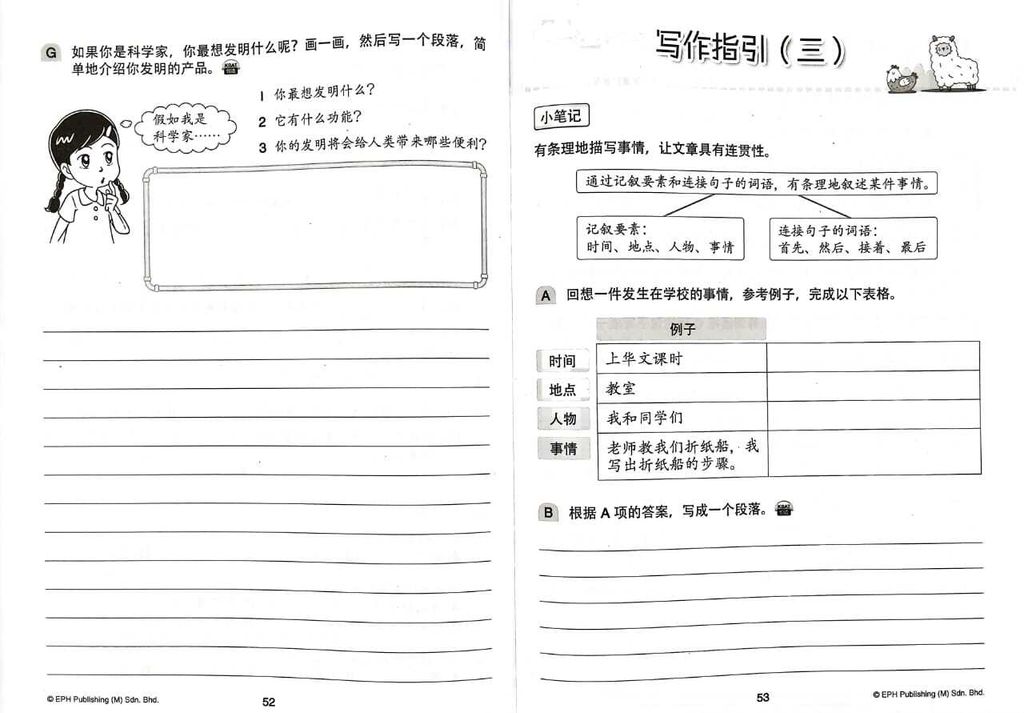 G 如果你是科学家，你最想发明什么呢？画一画，然后写一个段落，简
单地介绍你发明的产品。
1 你最想发明什么？
2 它有什么功能？
3 你的发明将会给人类带来哪些便利？
假如我是
科学家……
© EPH Publishing (M) Sdn. Bhd.
52
写作指引（三）
小笔记
有条理地描写事情，让文章具有连贯性。
通过记叙要素和连接句子的词语，有条理地叙述某件事情。
记叙要素：
时间、地点、人物、事情
连接句子的词语：
首先、然后、接着、最后
A 回想一件发生在学校的事情，参考例子，完成以下表格。
例子
时间 上华文课时
地点 教室
人物 我和同学们
事情 老师教我们折纸船，我
写出折纸船的步骤。
B 根据 A 项的答案，写成一个段落。
53
© EPH Publishing (M) Sdn. Bhd.